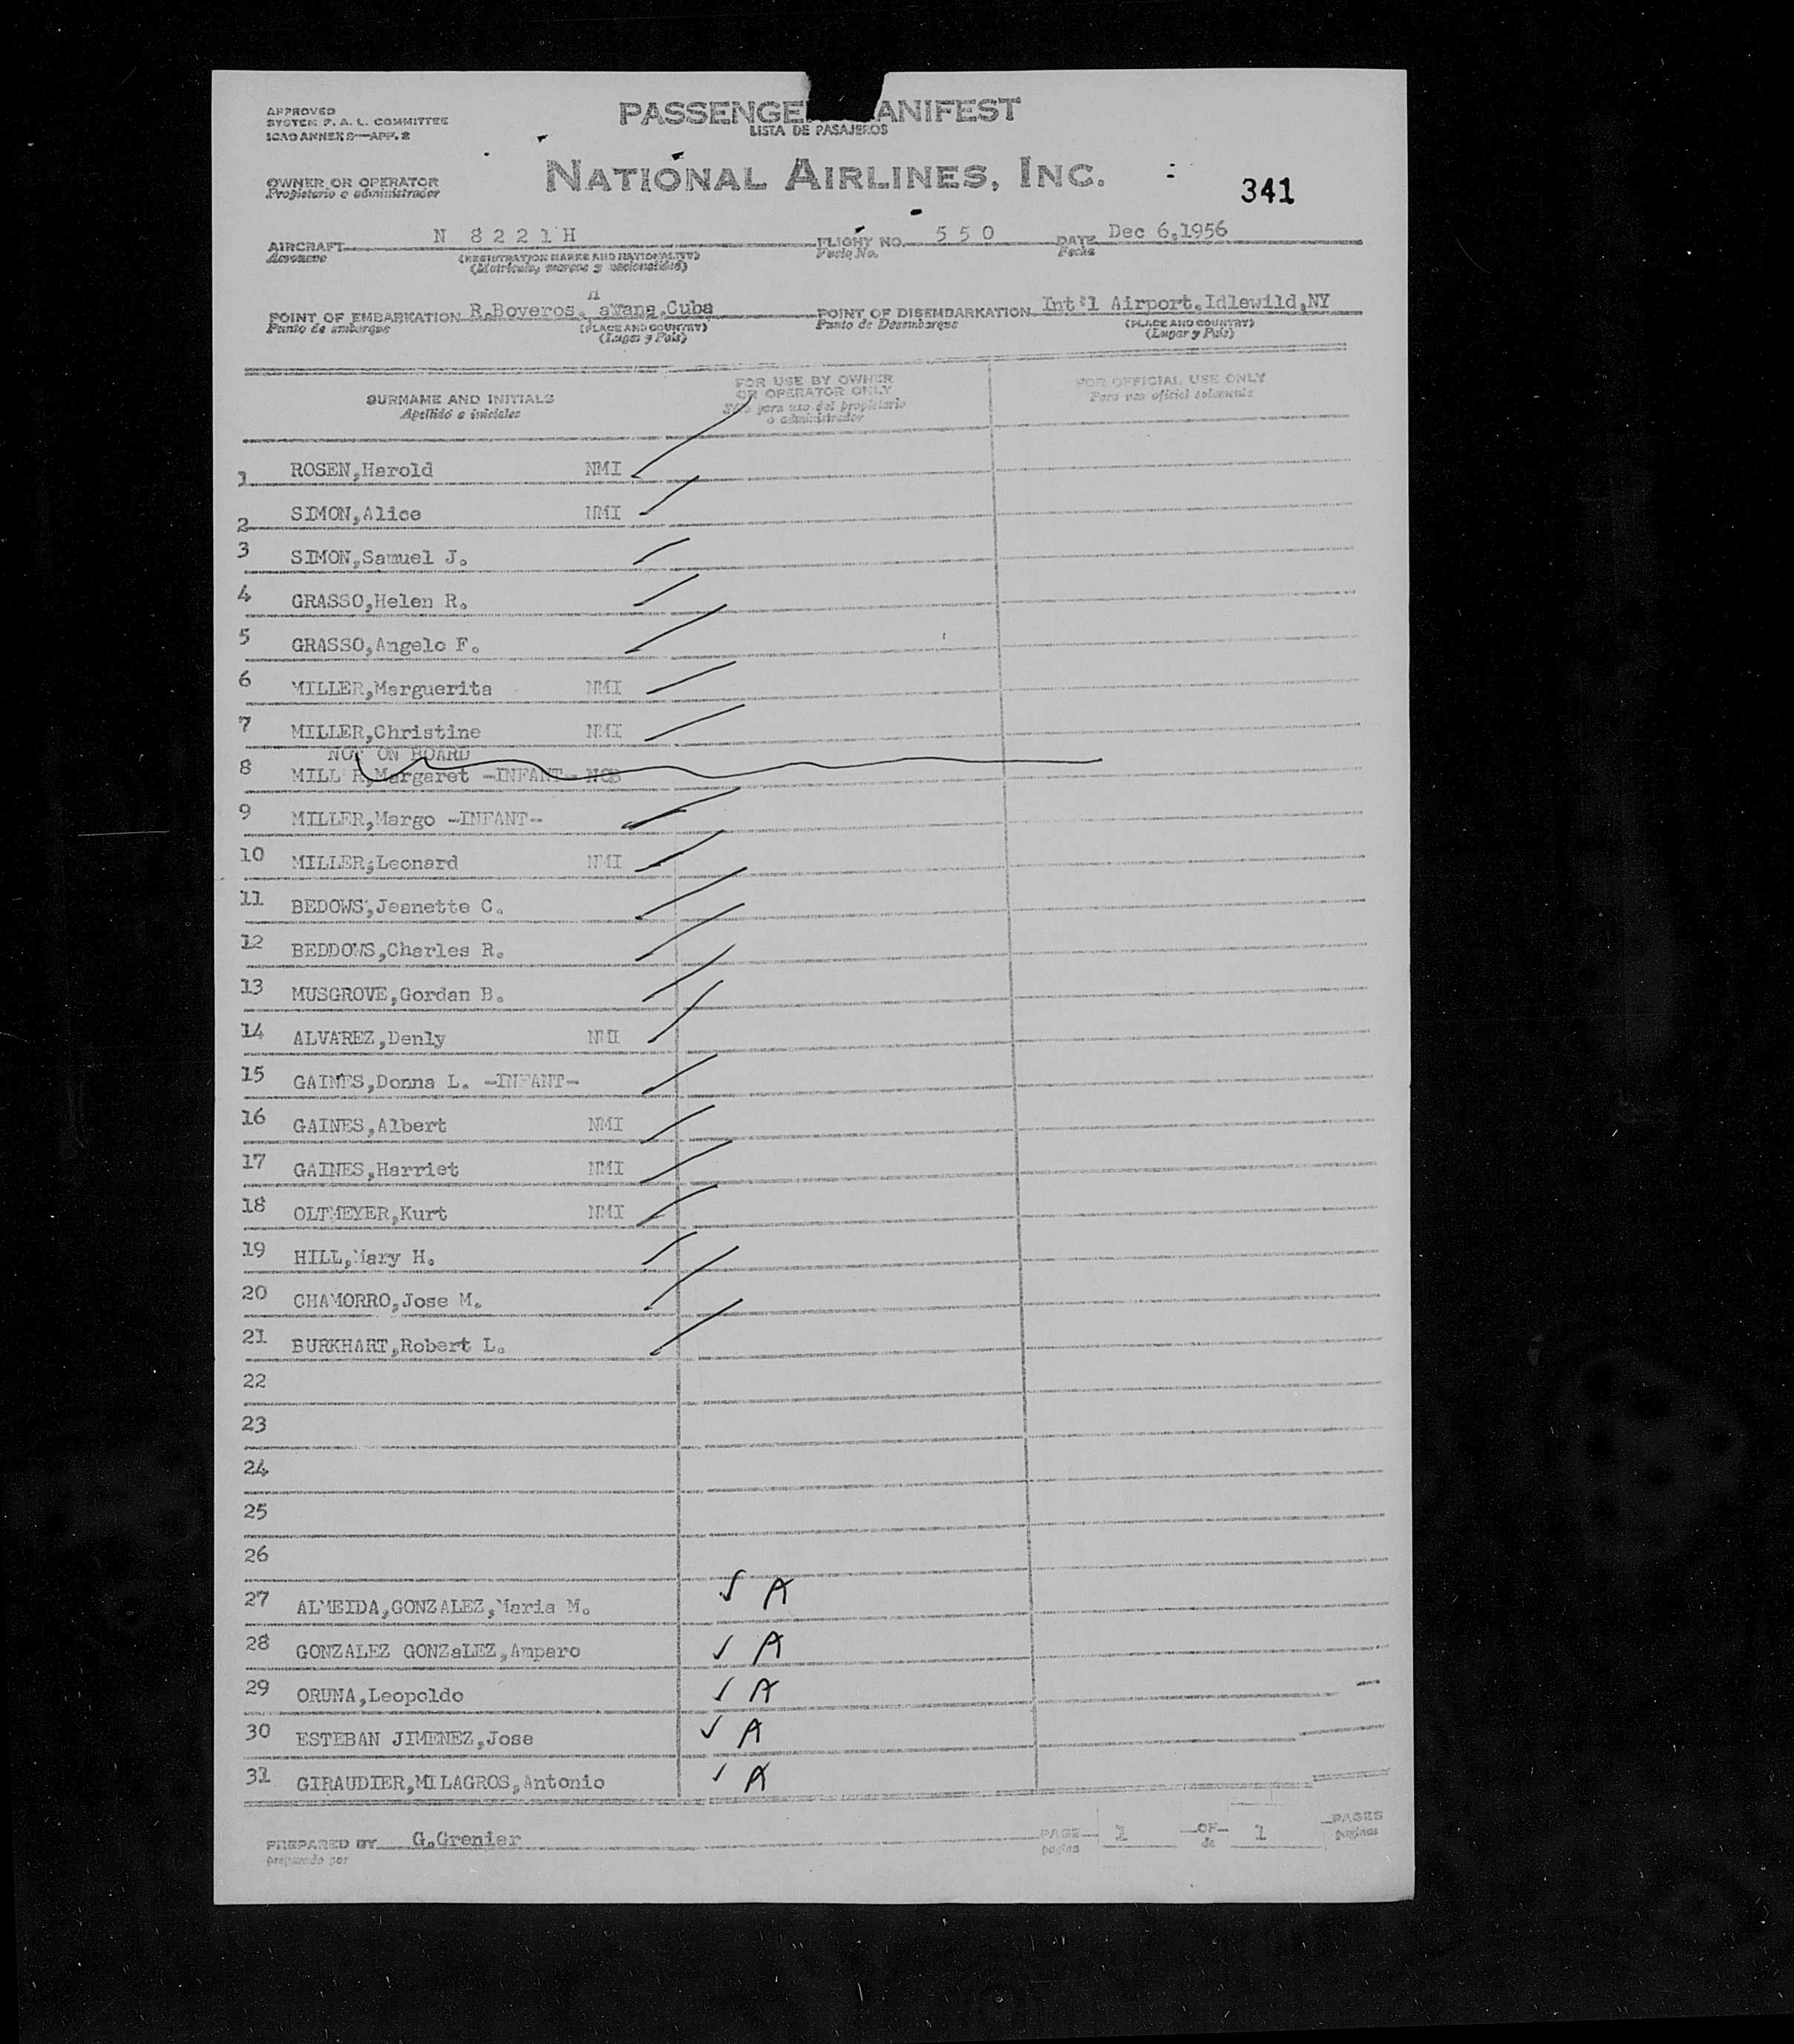 APPROVED
SYSTEM F. A. L. COMMITTEE
ICAO ANNEX 9—APP. 2
PASSENGE ANIFEST
LISTA DE PASAJEROS
OWNER OR OPERATOR
Propietario o administrador
NATIONAL AIRLINES, INC.
341
AIRCRAFT N 8221H FLIGHT NO. 550 DATE Dec 6,1956
Aeronave (REGISTRATION MARKS AND NATIONALITY) Vuelo No. Fecha
(Matricula, marcas y nacionalidad)
H
POINT OF EMBARKATION R.Boveros, avana,Cuba POINT OF DISEMBARKATION Int'l Airport,Idlewild,NY
Punto de embarque (PLACE AND COUNTRY) Punto de Desembarque (PLACE AND COUNTRY)
(Lugar y País) (Lugar y País)
SURNAME AND INITIALS
Apellido e iniciales
FOR USE BY OWNER
OR OPERATOR ONLY
Sólo para uso del propietario
o administrador
FOR OFFICIAL USE ONLY
Para uso oficial solamente
1 ROSEN,Harold NMI
2 SIMON,Alice NMI
3 SIMON,Samuel J.
4 GRASSO,Helen R.
5 GRASSO,Angelo F.
6 MILLER,Marguerita NMI
7 MILLER,Christine NMI
NOT ON BOARD
8 MILL R,Margaret -INFANT- NOB
9 MILLER,Margo -INFANT-
10 MILLER;Leonard NMI
11 BEDOWS,Jeanette C.
12 BEDDOWS,Charles R.
13 MUSGROVE,Gordan B.
14 ALVAREZ,Denly NMI
15 GAINES,Donna L. -INFANT-
16 GAINES,Albert NMI
17 GAINES,Harriet NMI
18 OLTMEYER,Kurt NMI
19 HILL,Mary H.
20 CHAMORRO,Jose M.
21 BURKHART,Robert L.
22
23
24
25
26
27 ALMEIDA,GONZALEZ,Maria M. ✓ A
28 GONZALEZ GONZaLEZ,Amparo ✓ A
29 ORUNA,Leopoldo ✓ A
30 ESTEBAN JIMENEZ,Jose ✓ A
31 GIRAUDIER,MILAGROS,Antonio ✓ A
PREPARED BY G.Grenier PAGE 1 OF 1 PAGES
preparado por pagina de paginas